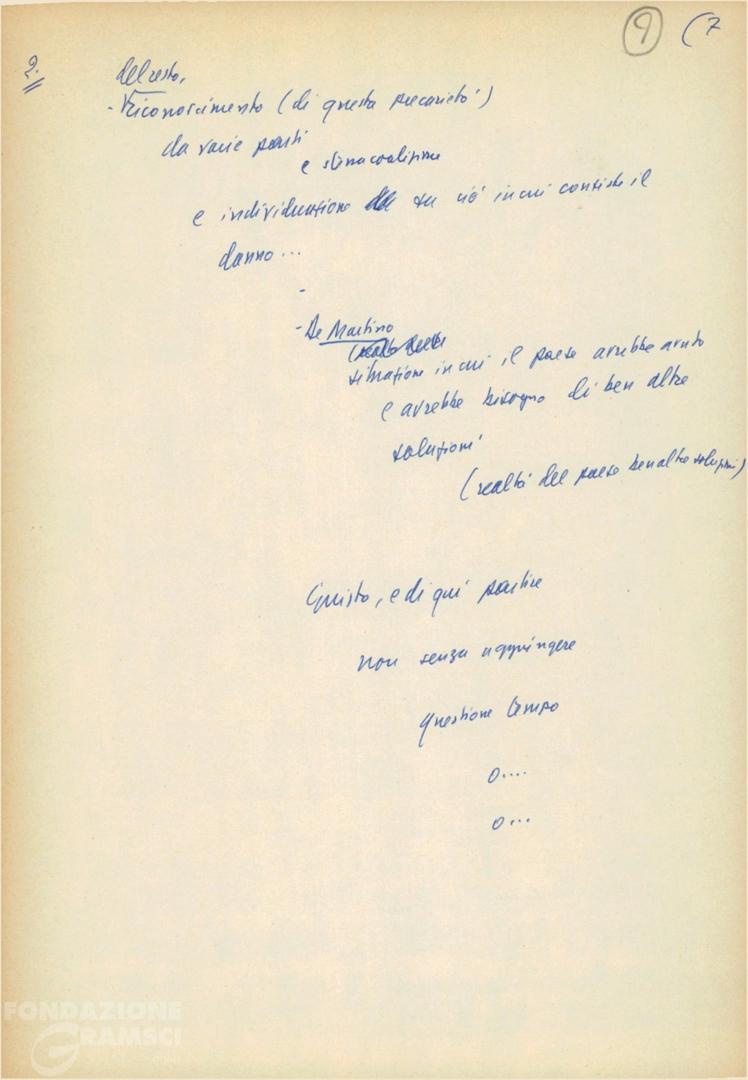 9 (7
2.
del resto,
- Riconoscimento (di questa precarietà)
da varie parti
e
e individuazione su ciò in cui consiste il
danno...
-
- De Martino
situazione in cui il paese avrebbe avuto
e avrebbe bisogno di ben altre
soluzioni
(realtà del paese ben altre soluzioni)
Giusto, e di qui partire
non senza aggiungere
questione tempo
o....
o...
FONDAZIONE
GRAMSCI